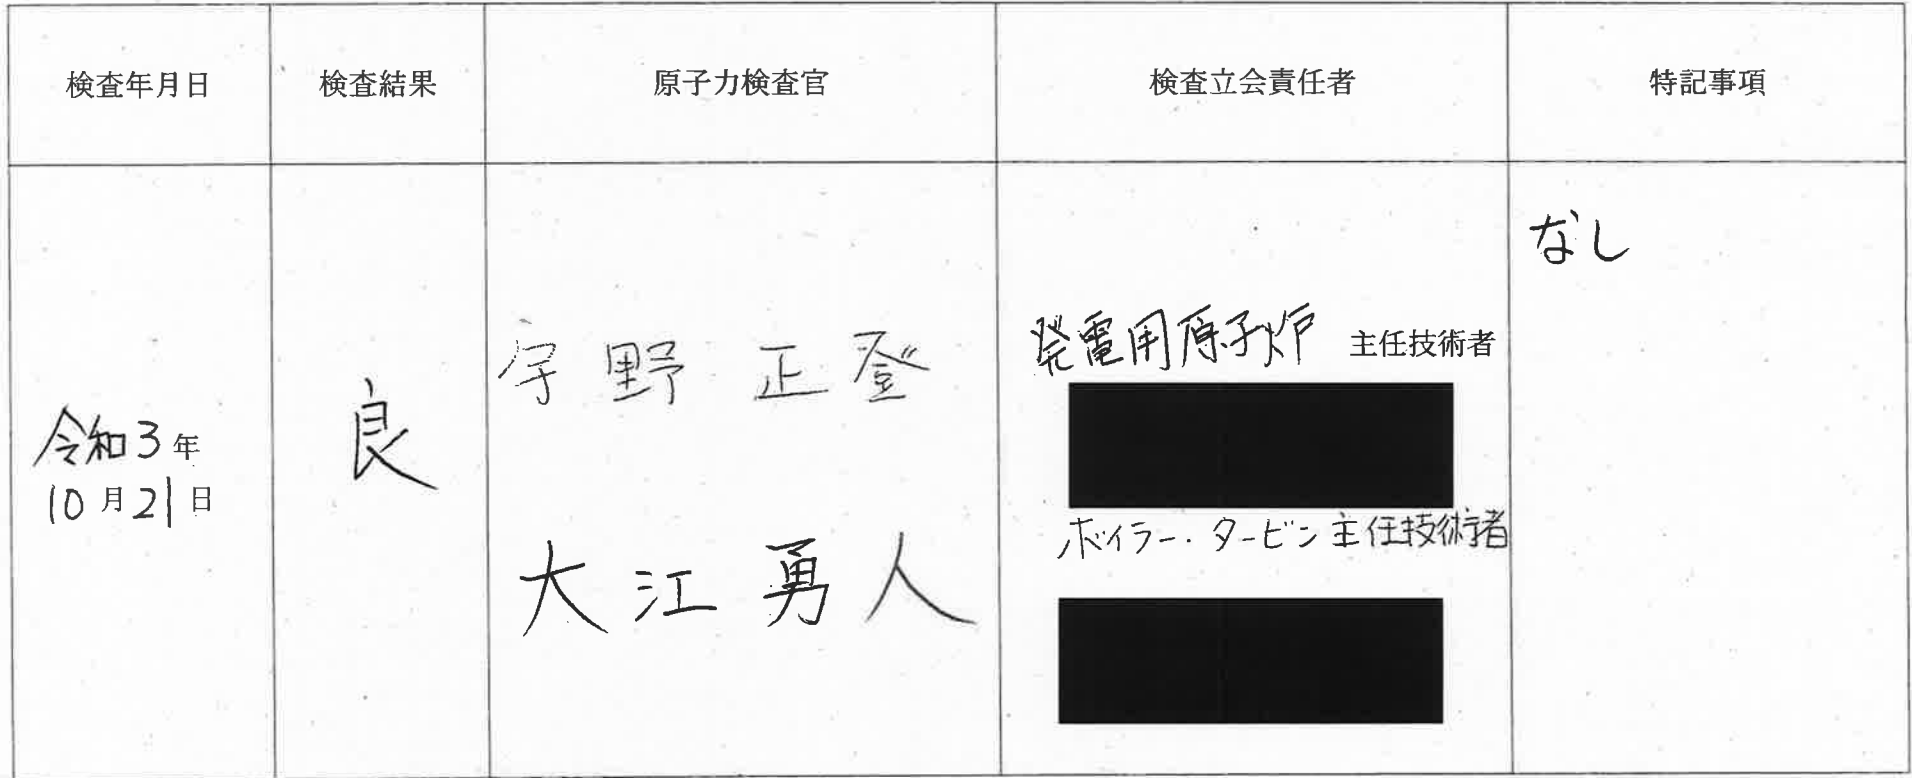 検査年月日
検査結果
原子力検査官
検査立会責任者
特記事項
令和3年
10月21日
良
宇野 正登
大江 勇人
発電用原子炉 主任技術者
ボイラー・タービン主任技術者
なし